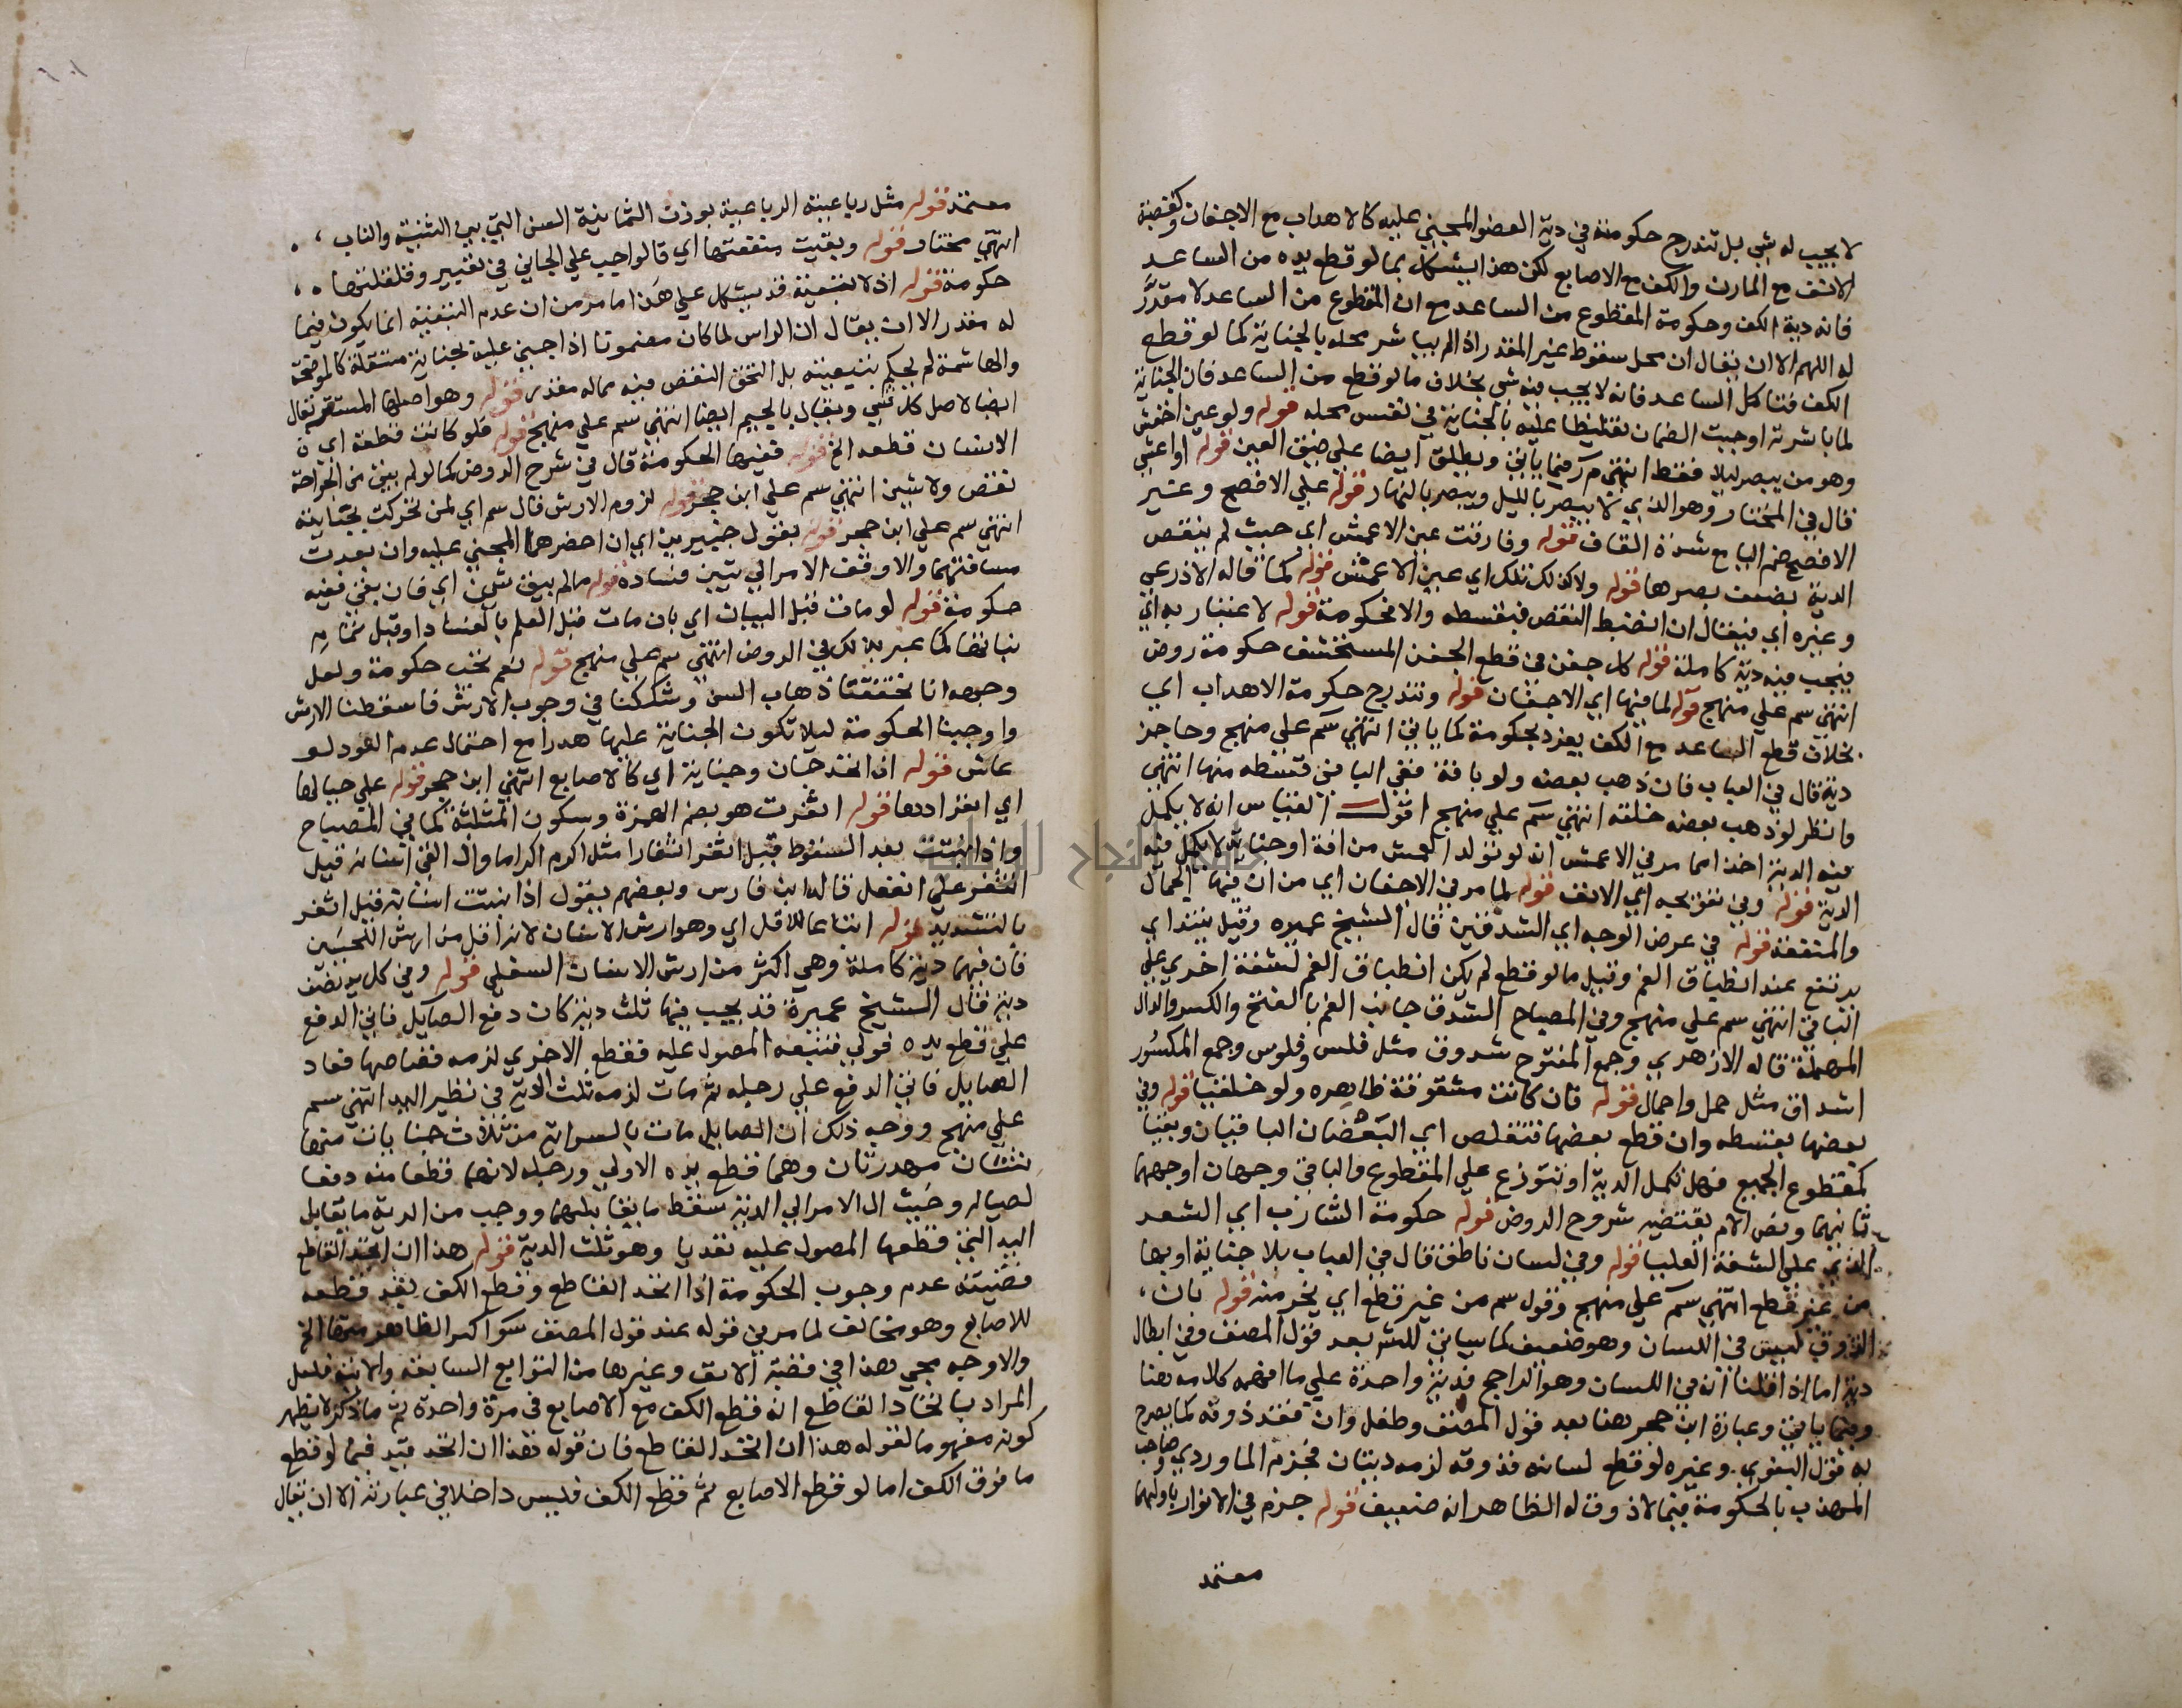 لا يجب له شي بل تندرج حكومته في دية العضو المجني عليه كالاهداب مع الاجفان وكقصبة
الانف مع المارن والكف مع الاصابع لكن هذا يشكل بما لو قطع يده من الساعد
فانه دية الكف وحكومة المقطوع من الساعد مع ان المقطوع من الساعد لا مقدر
له اللهم الا ان يقال ان محل سقوط غير المقدر اذا لم يباشر محله بالجناية كما لو قطع
الكف فتاكل الساعد فانه لا يجب فيه شي بخلاف ما لو قطع من الساعد فان الجناية
لما باشرته اوجبت الضمان تغليظا عليه بالجناية في نفس محله قوله ولو عين اخفش
وهو من يبصر ليلا فقط انتهى م ر فيما ياتي ويطلق ايضا على ضيق العين قوله او اعشى
قال في المختار وهو الذي لا يبصر بالليل ويبصر بالنهار قوله على الافصح وعبر
الافصح ضم البا مع شدة القاف قوله وفارقت عين الاعمش اي حيث لم ينقص
الدية بضعف بصرها قوله ولا كذلك تلك اي عين الاعمش قوله كما قاله الاذرعي
وغيره اي فيقال ان انضبط النقص فبقسطه والا فحكومة قوله لا عتبار به اي
فيجب فيه دية كاملة قوله كل جفن في قطع الجفن المستحشف حكومة روض
انتهى سم على منهج قوله لما فيها اي الاجفان قوله وتندرج حكومة الاهداب اي
بخلاف قطع الساعد مع الكف يفرد بحكومة كما ياتي انتهى سم على منهج وحاجز
دية قال في العباب فان ذهب بعضه ولو بافة ففي الباقي قسطه منها انتهى
وانظر لو ذهب بعضه خلقه انتهى سم على منهج اقول القياس انه لا يكمل
فيه الدية اخذا مما مر في الاعمش انه لو تولد العمش من افة او جناية لا يكمل فيه
الدية قوله وفي تعويجه اي الانف قوله لما مر في الاجفان اي من ان فيها الجمال
والمنفعة قوله في عرض الوجه اي الشدقين قال الشيخ عميره وقيل يبتدا اي
يرتفع عند انطباق الفم وقيل ما لو قطع لم يكن انطباق الفم لشفة اخرى على
الباقي انتهى سم على منهج وفي المصباح الشدق جانب الفم بالفتح والكسر والدال
المهملة قاله الازهري وجمع المفتوح شدوق مثل فلس وفلوس وجمع المكسور
اشداق مثل حمل واحمال قوله فان كانت مشقوقة ظاهره ولو خلقيا قوله وفي
بعضها بقسطه وان قطع بعضها فتقلص اي البعضان الباقيان وبقيا
كمقطوع الجميع فهل تكمل الدية او تتوزع على المقطوع والباقي وجهان اوجههما
ثانيهما ونص الام يقتضيه شروح الروض قوله حكومة الشارب اي الشعر
الذي على الشفة العليا قوله وفي لسان ناطق قال في العباب بلا جناية اوبها
من غير قطع انتهى سم على منهج وقول سم من غير قطع اي يخرمنه قوله بان
الذوق ليس في اللسان وهو ضعيف كما سياتي للش بعد قول المصنف وفي ابطال
دية اما اذا قلنا انه في اللسان وهو الراجح فدية واحدة على ما افهمه كلامه هنا
وفيما ياتي وعبارة ابن حجر هنا بعد قول المصنف وطفل وان فقد ذوقه كما يصرح
له قول البغوي وغيره لو قطع لسانه فذوقه لزمه ديتان فجزم الماوردي وصاحب
المهذب بالحكومة فيما لا ذوق له الظاهر انه ضعيف قوله جزم في الانوار باولهما
معتمد
معتمد قوله مثل رباعيته الرباعية بوزن الثمانية السن التي بين الثنية والناب
انتهى مختار قوله وبقيت منفعتها اي قالواجب على الجاني في تغيير وقلقلتها
حكومة قوله اذ لا تبعية قد يشكل على هذا ما مر من ان عدم التبعية انما يكون فيما
له مقدر الا ان يقال ان الراس لما كان مضمونا اذا جني عليه بجناية مستقلة كالموضحة
والهاشمة لم يحكم بتبعيته بل التحق النقص فيه مما له مقدر قوله وهو اصلها المستقر يقال
ايضا لاصل كل شي ويقال بالجيم ايضا انتهى سم على منهج قوله فلو كانت قطعة اي ن
الاسنان قطعه الخ قوله ففيها الحكومة قال في شرح الروض كما لو لم يبق من الجراحة
نقص ولا شين انتهى سم على ابن حجر قوله لزوم الارش قال سم اي لمن تحركت بجناية
انتهى سم على ابن حجر قوله بقول خبيرين اي ان احضرهما المجني عليه وان بعدت
مسافتهما والا وقف الامر الى تبين فساده قوله ما لم يبق شين اي فان بقي ففيه
حكومة قوله لو مات قبل البيان اي بان مات قبل العلم بالفساد او قبل تمام
نباتها كما عبر بذلك في الروض انتهى سم على منهج قوله نعم تجب حكومة ولعل
وجهه انا تحققنا ذهاب السن وشككنا في وجوب الارش فاسقطنا الارش
واوجبنا الحكومة ليلا تكون الجناية عليها هدرا مع احتمال عدم العود لو
عاش قوله ان اتحد جان وجناية اي كالاصابع انتهى ابن حجر قوله على حيالها
اي انفرادها قوله اثغرت هو بضم الهمزة وسكون المثلثة كما في المصباح
واذا نبتت بعد السقوط قيل اثغر اثغارا مثل اكرم اكراما واذا القى اسنانه قيل
اتغر على افتعل قاله ابن فارس وبعضهم يقول اذا نبتت اسنانه قيل اثغر
بالتشديد قوله اتباعا للاقل اي وهو ارش الاسنان لانه اقل من ارش اللحيين
فان فيهما دية كاملة وهي اكثر من ارش الاسنان السفلى قوله وفي كل يد نصف
دية فقال الشيخ عميرة قد يجب فيها ثلث دية كان دفع الصايل فاتى الدفع
على قطع يده فولى فتبعه المصول عليه فقطع الاخرى لزمه قصاصها فعاد
الصايل فاتى الدفع على رجله ثم مات لزمه ثلث الدية في نظير اليد انتهى سم
على منهج ووجه ذلك ان الصايل مات بالسراية من ثلاث جنايات منها
ثنتان مهدرتان وهما قطع يده الاولى ورجله لانهما قطعا منه دفعا
لصياله وحيث ال الامر الى الدية سقط ما يقابلهما ووجب من الدية ما يقابل
اليد التي قطعها المصول عليه تعديا وهو ثلث الدية قوله هذا ان اتحد القاطع
قضيته عدم وجوب الحكومة اذا اتحد القاطع وقطع الكف بعد قطعه
للاصابع وهو مخالف لما مر في قوله عند قول المصنف سوا كسر الظاهر منها الخ
والاوجه مجي هذا في قصبة الانف وغيرها من التوابع السابقة والاتية فلعل
المراد باتحاد القاطع انه قطع الكف مع الاصابع في مرة واحدة ثم ما ذكر لا يظهر
كونه مفهوما لقوله هذا ان اتحد القاطع فان قوله هذا ان اتحد قيد فيما لو قطع
ما فوق الكف اما لو قطع الاصابع ثم قطع الكف فليس داخلا في عبارته الا ان يقال